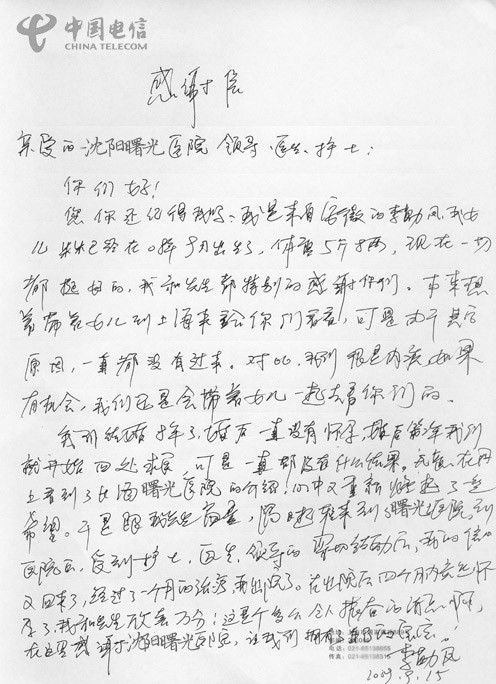 中国电信
CHINA TELECOM
感谢信
亲爱的沈阳曙光医院领导、医生、护士：
你们好！
您们还记得我吗、我是来自安徽的李勤凤，我女
儿 已经在 月出生了，体重5斤 两，现在一切
都挺好的，我和先生都特别的感谢你们。本来想
着带着女儿到上海来给你们看看，可是由于其它
原因，一直都没有过来。对此，我们很是内疚，如果
有机会，我们还是会带着女儿一起去看你们的。
我们结婚 年了，婚后一直没有怀孕，婚后第 年我们
就开始四处求医，可是一直都没有什么结果。 在网
上看到了上海曙光医院的介绍，心中又重新燃起了
希望。于是跟我先生商量， 来到了曙光医院，到
医院后，受到护士，医生，领导的 后，我的信心
又回来了，经过了一个月的治疗 出院了。在出院后四个月内竟然怀
孕了，我和先生 万分！这是个多么令人振奋的消息啊，
在这里感谢沈阳曙光医院，让我们拥有
电话：021-65138655
传真：021-65138315
李勤凤
2009. .15